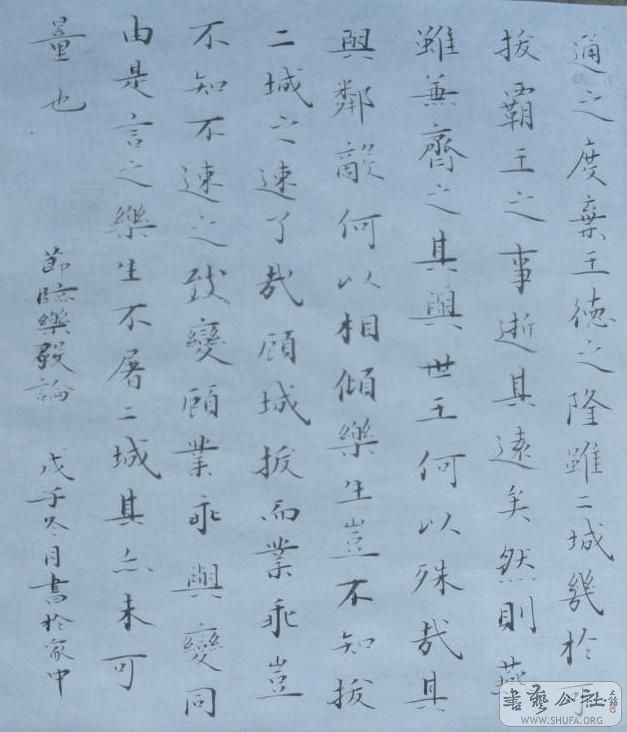 通之度棄王德之隆雖二城幾於可
拔霸王之事逝其遠矣然則燕
雖兼齊之其與世主何以殊哉其
與鄰敵何以相傾樂生豈不知拔
二城之速了哉顧城拔而業乖豈
不知不速之致變顧業乖與變同
由是言之樂生不屠二城其亦未可
量也
節臨樂毅論 戊子冬月書於家中
書藝公社
WWW.SHUFA.ORG